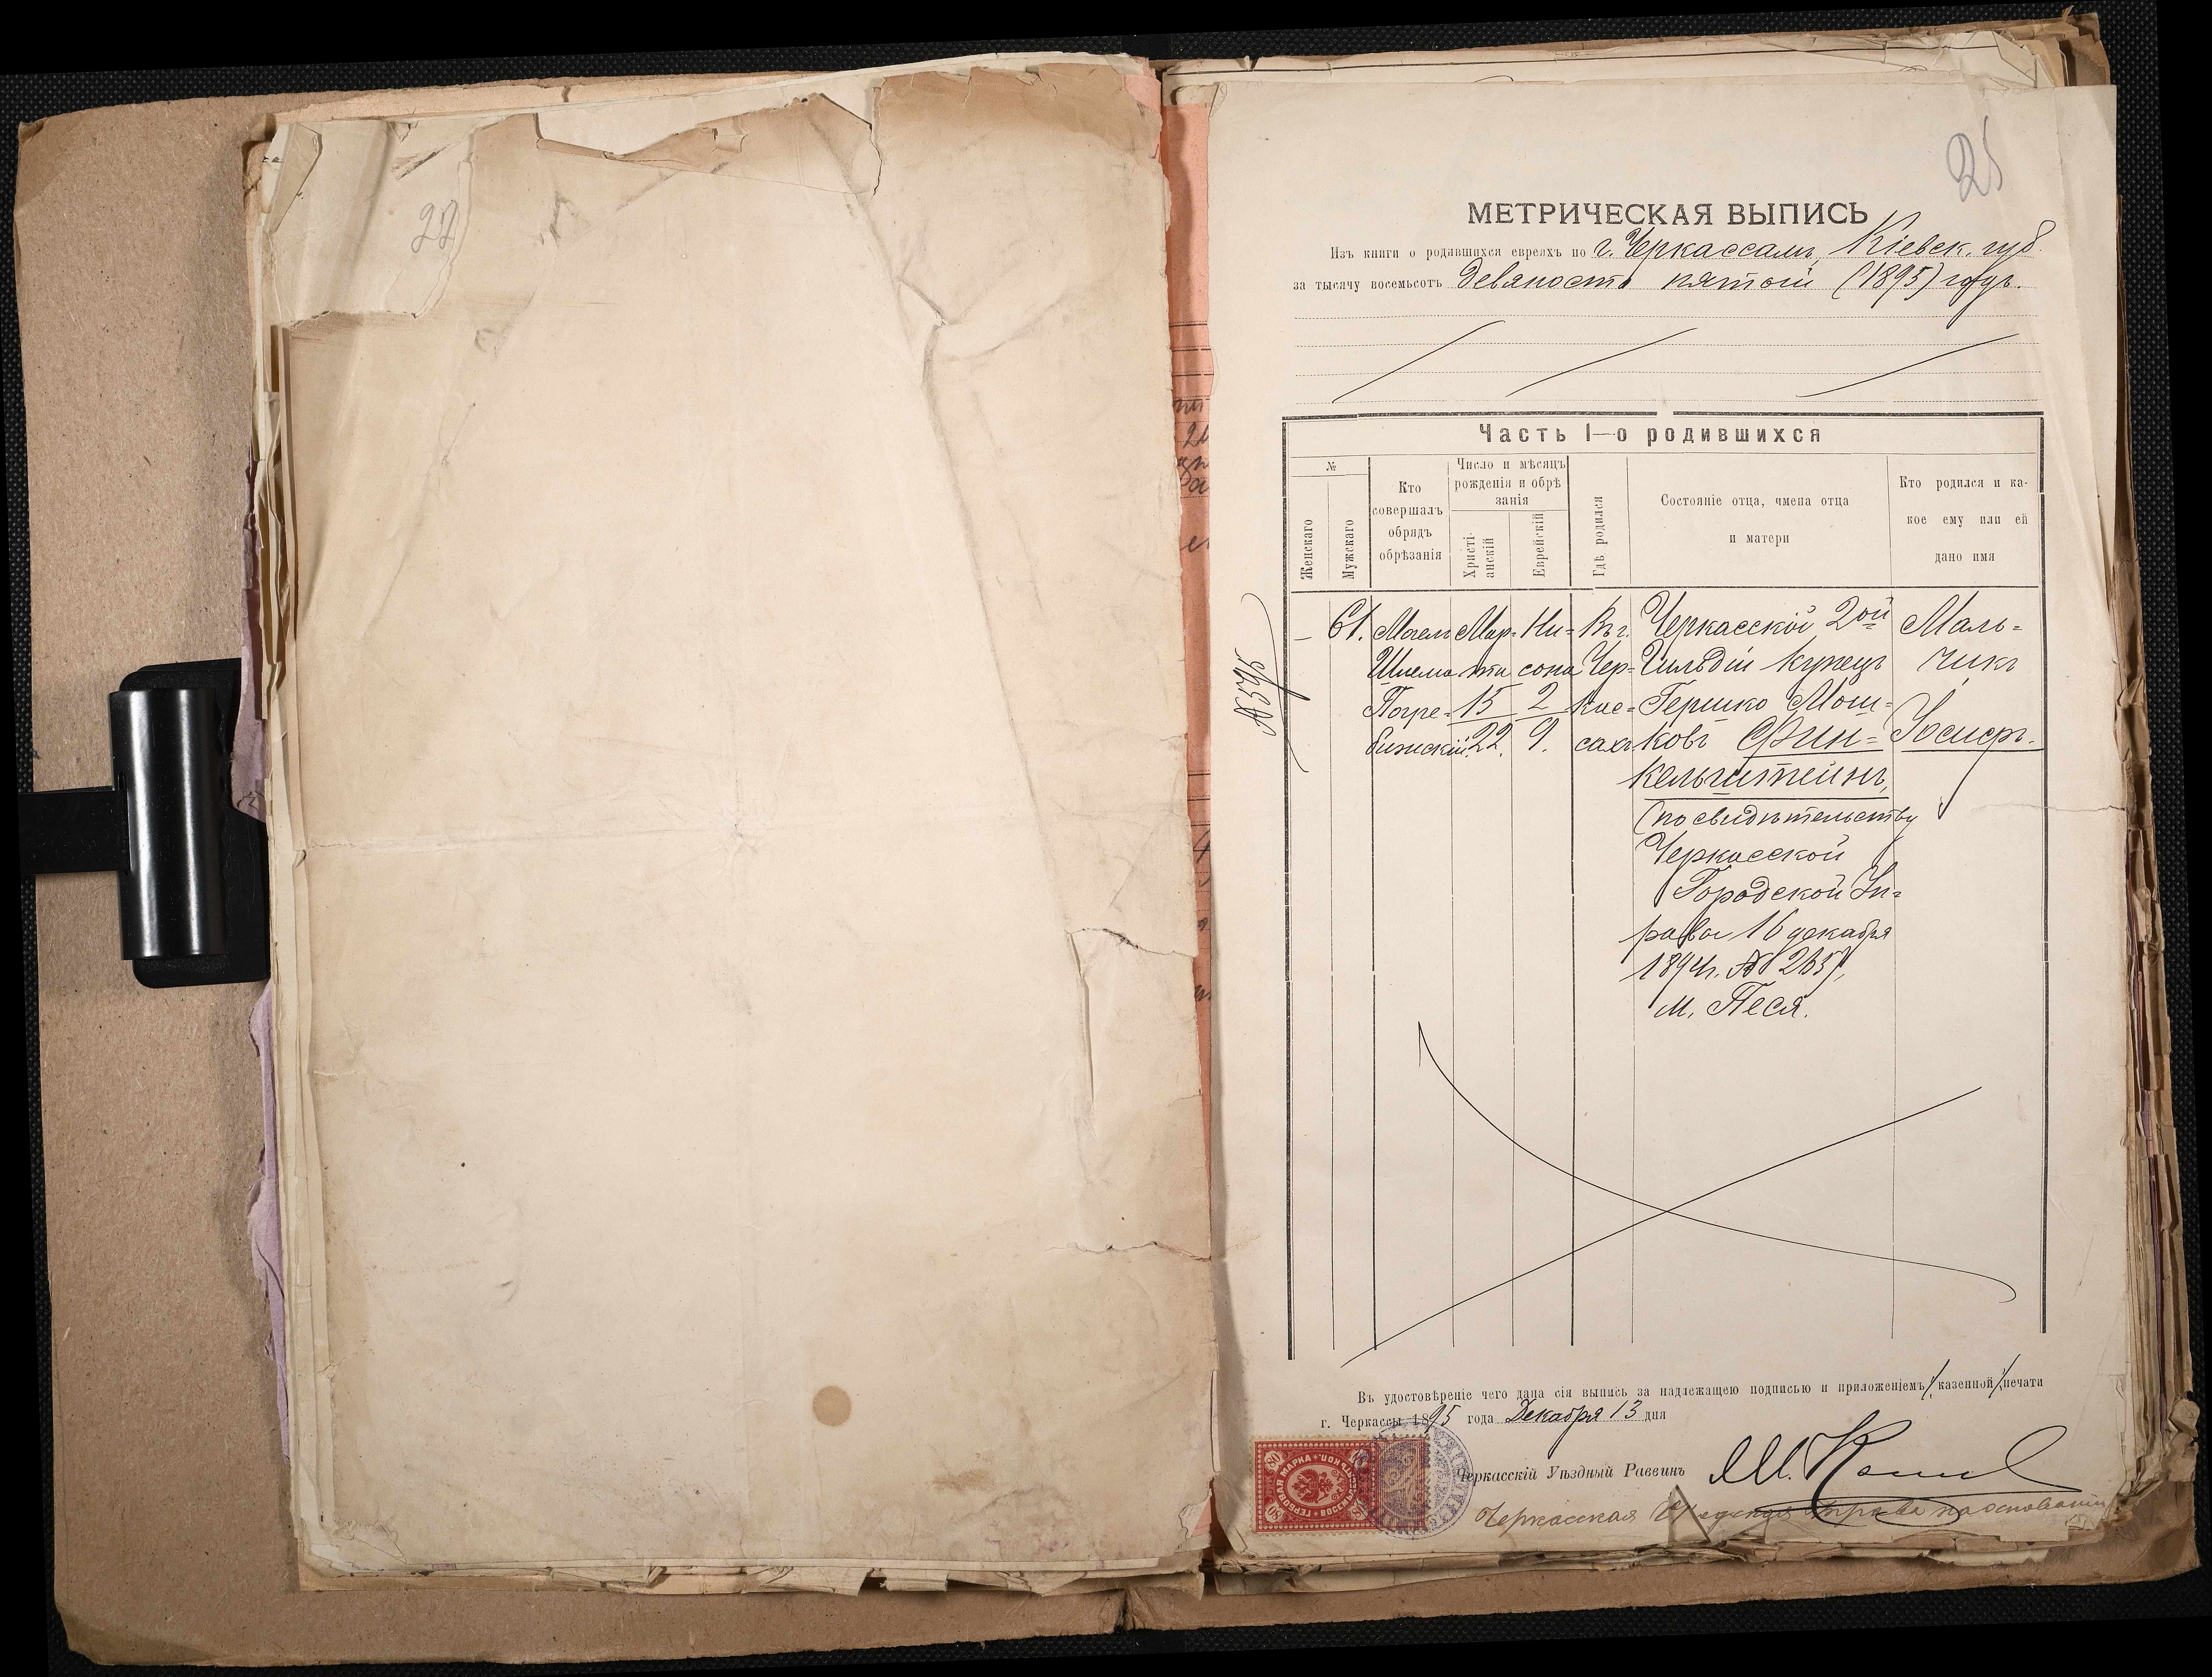 22
25
МЕТРИЧЕСКАЯ ВЫПИСЬ
Изъ книги о родившихся евреяхъ по г. Черкассамъ, Кіевск. губ.
за тысячу восемьсотъ девяносто пятый (1895) годъ.
Часть I—о родившихся
№
Женскаго
Мужскаго
Кто
совершалъ
обрядъ
обрѣзанія
Число и мѣсяцъ
рожденія и обрѣ
занія
Христі-
анскій
Еврейскій
Гдѣ родился
Состояніе отца, имена отца
и матери
Кто родился и ка-
кое ему или ей
дано имя
№ 595
–
61.
Шлема
Погре-
бижскій.
Мар-
та
15
22.
Ни-
сона
2
9.
Въ г.
Чер-
кас-
сахъ
Черкасскій 2ой
Гильдіи купецъ
Гершко Мош-
ковъ Фин-
кельштейнъ,
(по свидѣтельству
Черкасской
Городской Уп-
равы 16 декабря
1894г. №
м. Песя.
Маль-
чикъ
Іосифъ.
Въ удостовѣреніе чего дана сія выпись за надлежащею подписью и приложеніемъ казенной печати
г. Черкассы 1895 года Декабря 13 дня
Черкасскій Уѣздный Раввинъ
ГЕРБОВАЯ МАРКА
80
Черкасская Городская Управа на основаніи